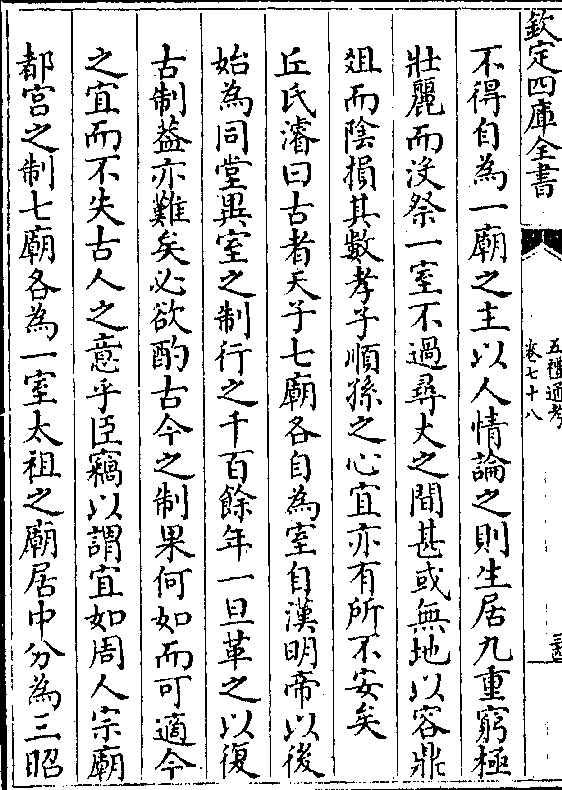 欽定四庫全書
五禮通考
卷七十八
不得自為一廟之主以人情論之則生居九重窮極
壯麗而沒祭一室不過尋丈之間甚或無地以容鼎
俎而陰損其數孝子順孫之心宜亦有所不安矣
丘氏濬曰古者天子七廟各自為室自漢明帝以後
始為同堂異室之制行之千百餘年一旦革之以復
古制葢亦難矣必欲酌古今之制果何如而可適今
之宜而不失古人之意乎臣竊以謂宜如周人宗廟
都宮之制七廟各為一室太祖之廟居中分為三昭